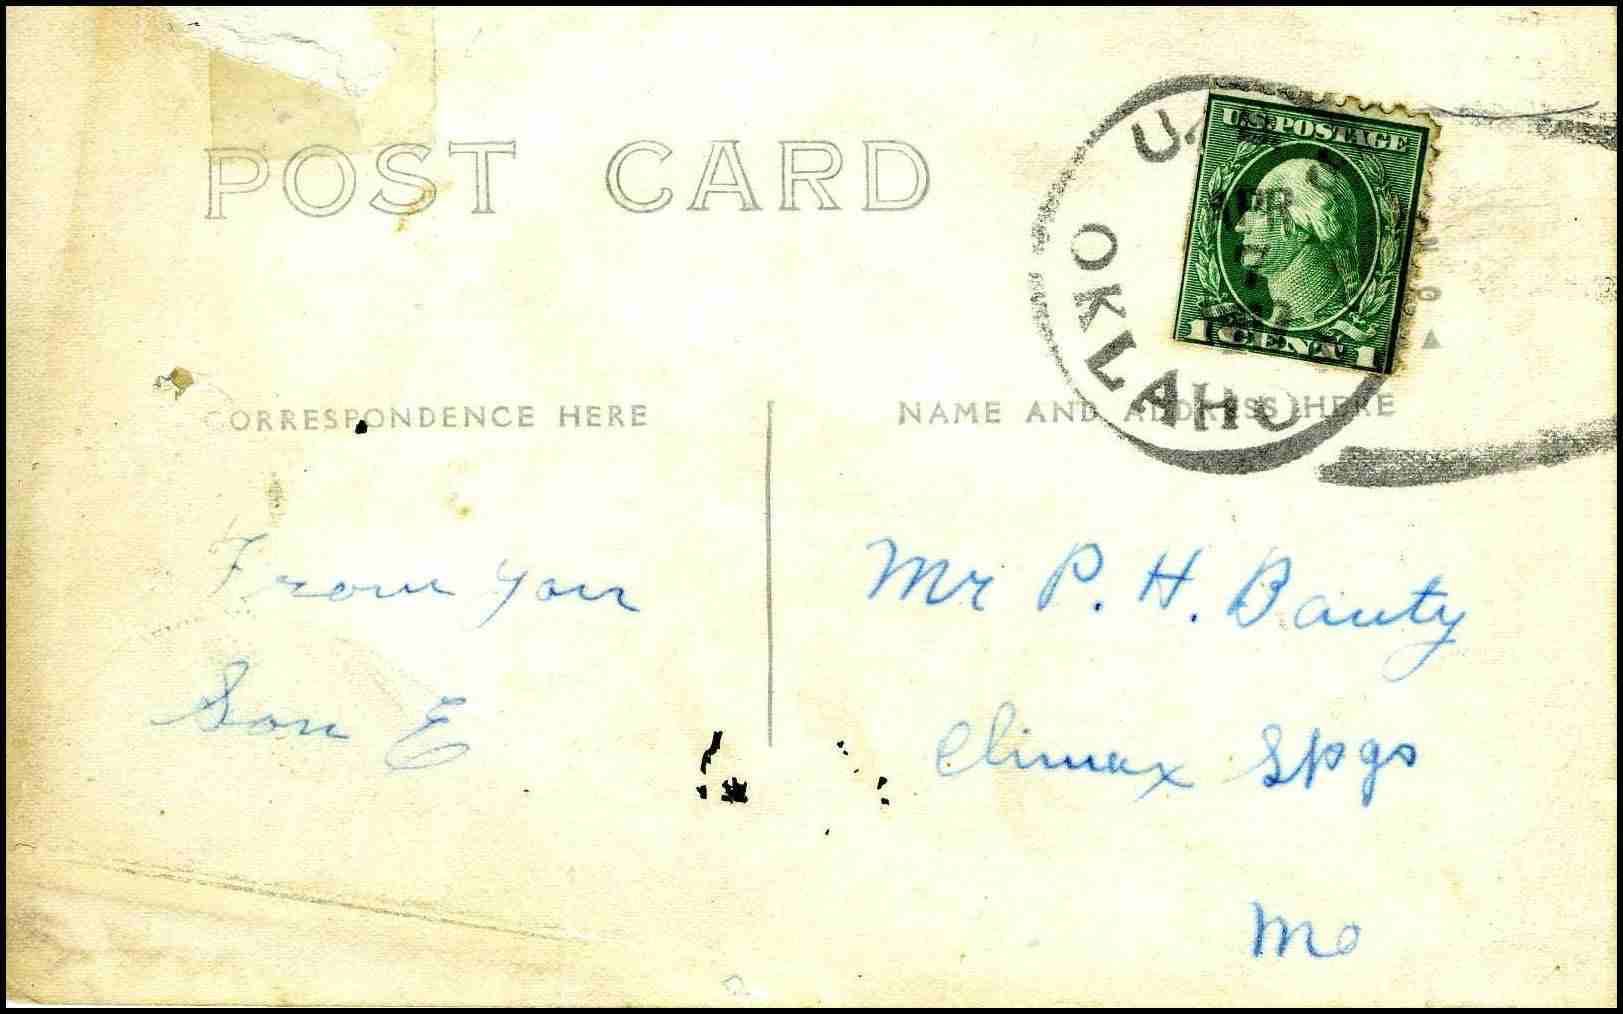 POST CARD
U.S. POSTAGE
1 CENT 1
OKLAHO
CORRESPONDENCE HERE
NAME AND ADDRESS HERE
From your
Son E
Mr P. H. Bauty
Climax Spgs
Mo